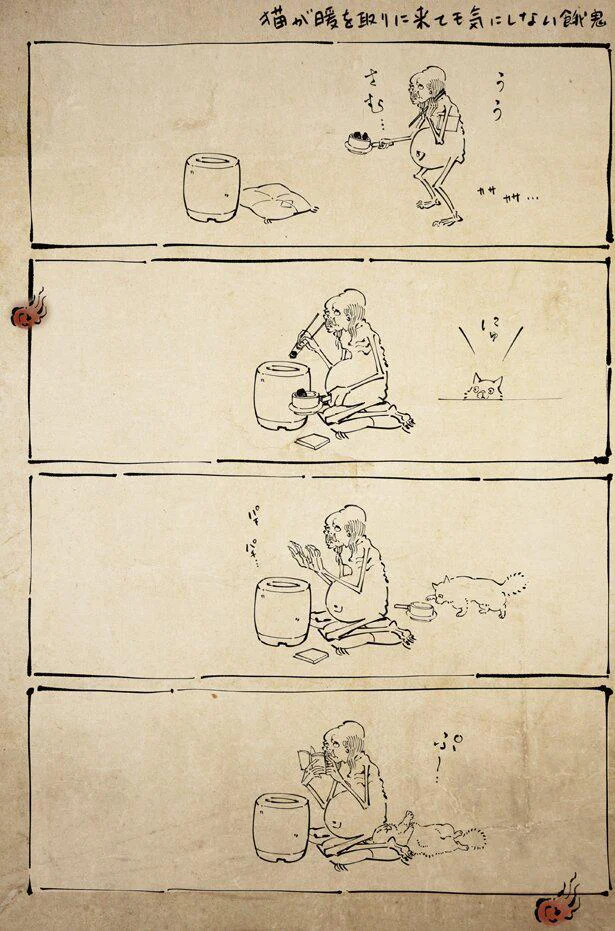 猫が暖を取りに来ても気にしない餓鬼
うう
さむ…
カサ
カサ…
にゅ
パキ
パキ…
ぷ〜…